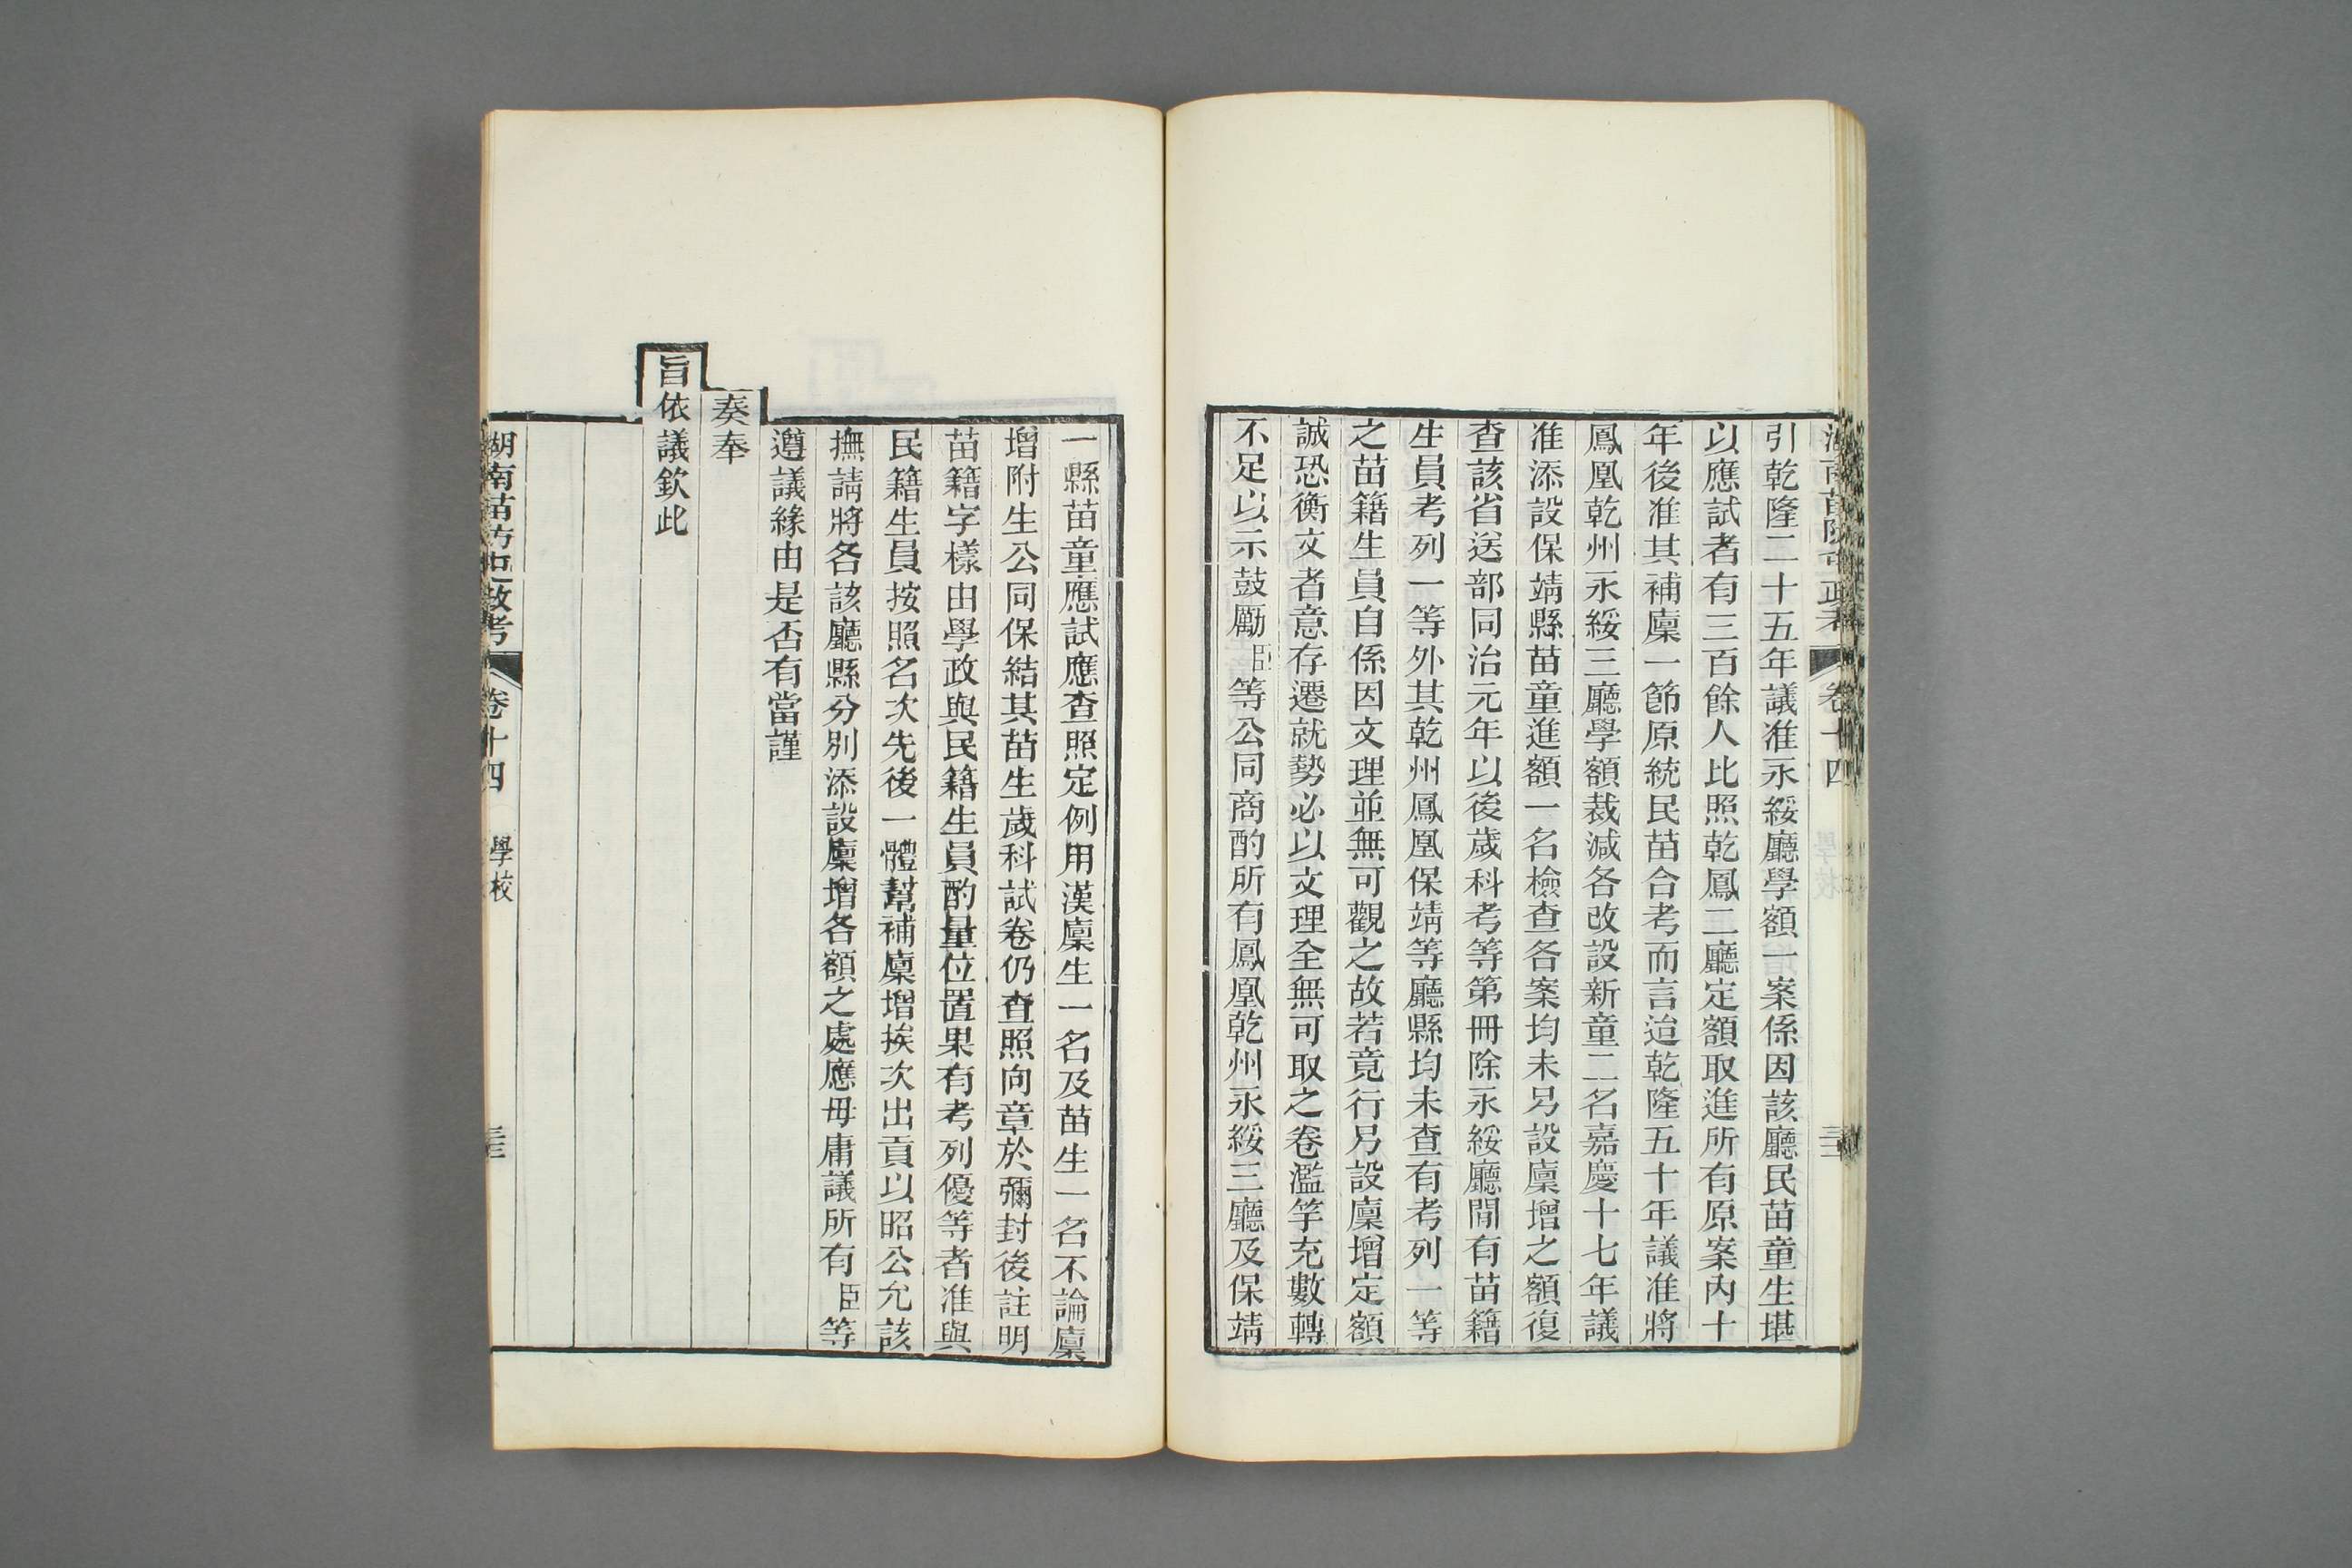 引乾隆二十五年議准永綏廳學額一案係因該廳民苗童生堪
以應試者有三百餘人比照乾鳳二廳定額取進所有原案內十
年後准其補廩一節原統民苗合考而言迨乾隆五十年議准將
鳳凰乾州永綏三廳學額裁減各改設新童二名嘉慶十七年議
准添設保靖縣苗童進額一名檢查各案均未另設廩增之額復
查該省送部同治元年以後歲科考等第冊除永綏廳閒有苗籍
生員考列一等外其乾州鳳凰保靖等廳縣均未查有考列一等
之苗籍生員自係因文理並無可觀之故若竟行另設廩增定額
誠恐衡文者意存遷就勢必以文理全無可取之卷濫竽充數轉
不足以示鼓勵臣等公同商酌所有鳳凰乾州永綏三廳及保靖
一縣苗童應試應查照定例用漢廩生一名及苗生一名不論廩
增附生公同保結其苗生歲科試卷仍查照向章於彌封後註明
苗籍字樣由學政與民籍生員酌量位置果有考列優等者准與
民籍生員按照名次先後一體幫補廩增挨次出貢以昭公允該
撫請將各該廳縣分別添設廩增各額之處應毋庸議所有臣等
遵議緣由是否有當謹
奏奉
旨依議欽此
湖南苗防屯政考 卷十四 學校